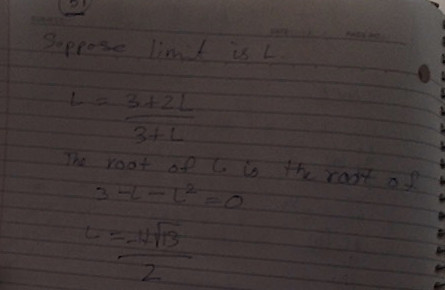 31
Suppose limit is L
L = 3+2L
3+L
The root of L is the root of
3-L-L²=0
L = -1+√13
2